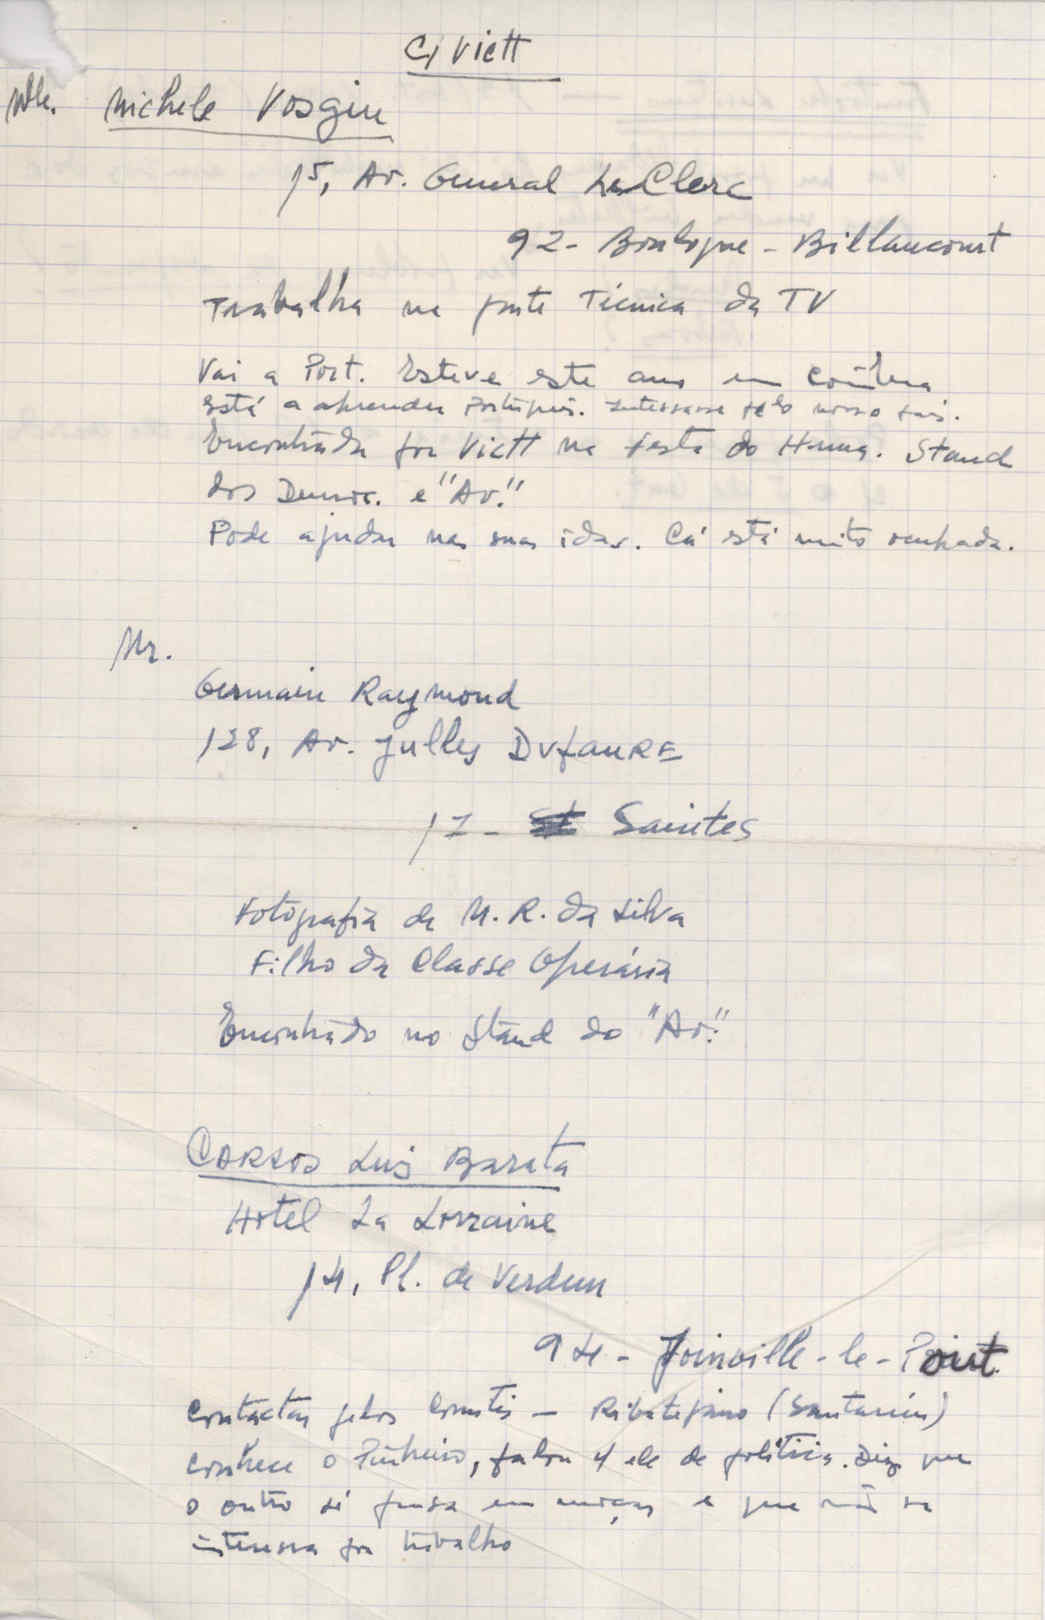 C/ Viett
Mlle. Michele Vosgin
15, Av. General Le Clerc
92 - Boulogne - Billancourt
Trabalha na parte Técnica da TV
Vai a Port. Esteve este ano em Coimbra
Está a aprender Português. Interessa-se pelo nosso país.
Encontrada por Viett na festa do Huma. Stand
dos Democ. e "Av."
Pode ajudar nas suas idas. Cá está muito ocupada.
Mr.
Germain Raymond
128, Av. Julles DufauRE
17 - Saintes
Fotografia de M. R. da Silva
Filho da Classe Operária
Encontrado no Stand do "Av."
Carlos Luis Barata
Hotel La Lorraine
14, Pl. de Verdun
94 - Joinville - le - Pont
Contactar pelos Comités - Ribatejano (Santarém)
Conhece o Pinheiro, falou c/ ele de política. Diz que
o outro só pensa em e que não se
interessa por trabalho